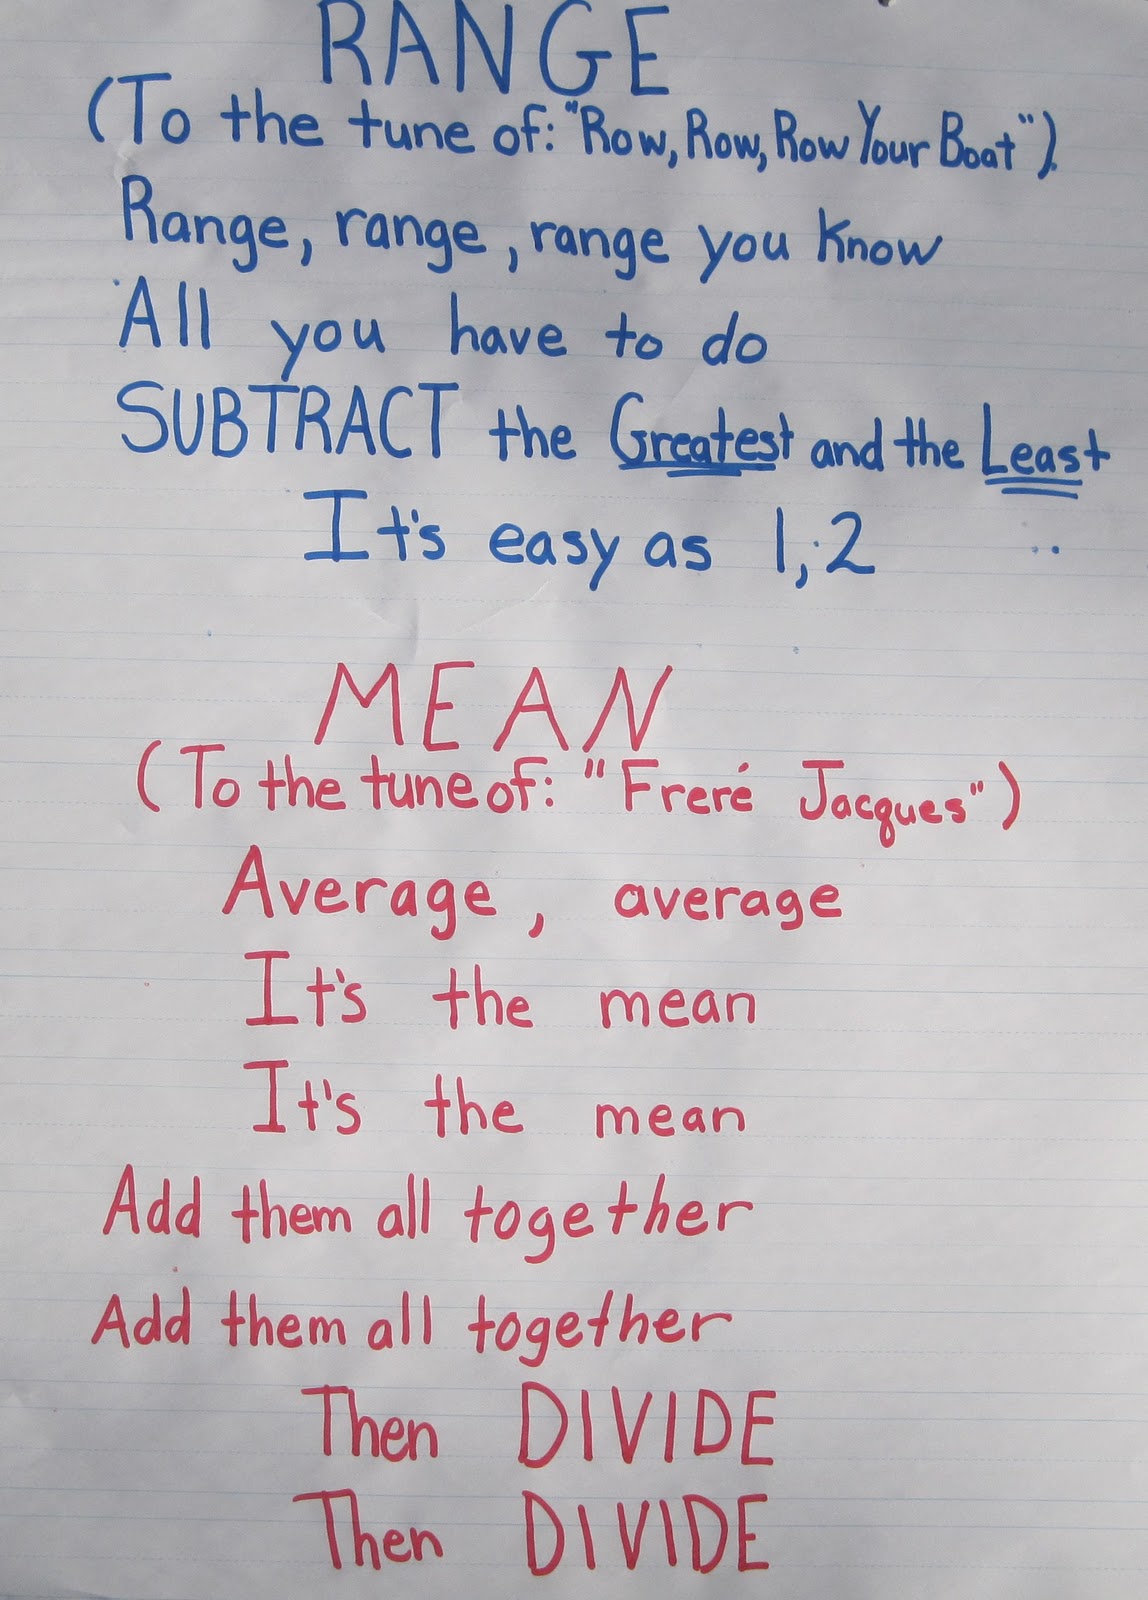 RANGE
(To the tune of: "Row, Row, Row Your Boat").
Range, range, range you know
All you have to do
SUBTRACT the Greatest and the Least
It's easy as 1, 2
MEAN
(To the tune of: "Freré Jacques")
Average, average
It's the mean
It's the mean
Add them all together
Add them all together
Then DIVIDE
Then DIVIDE